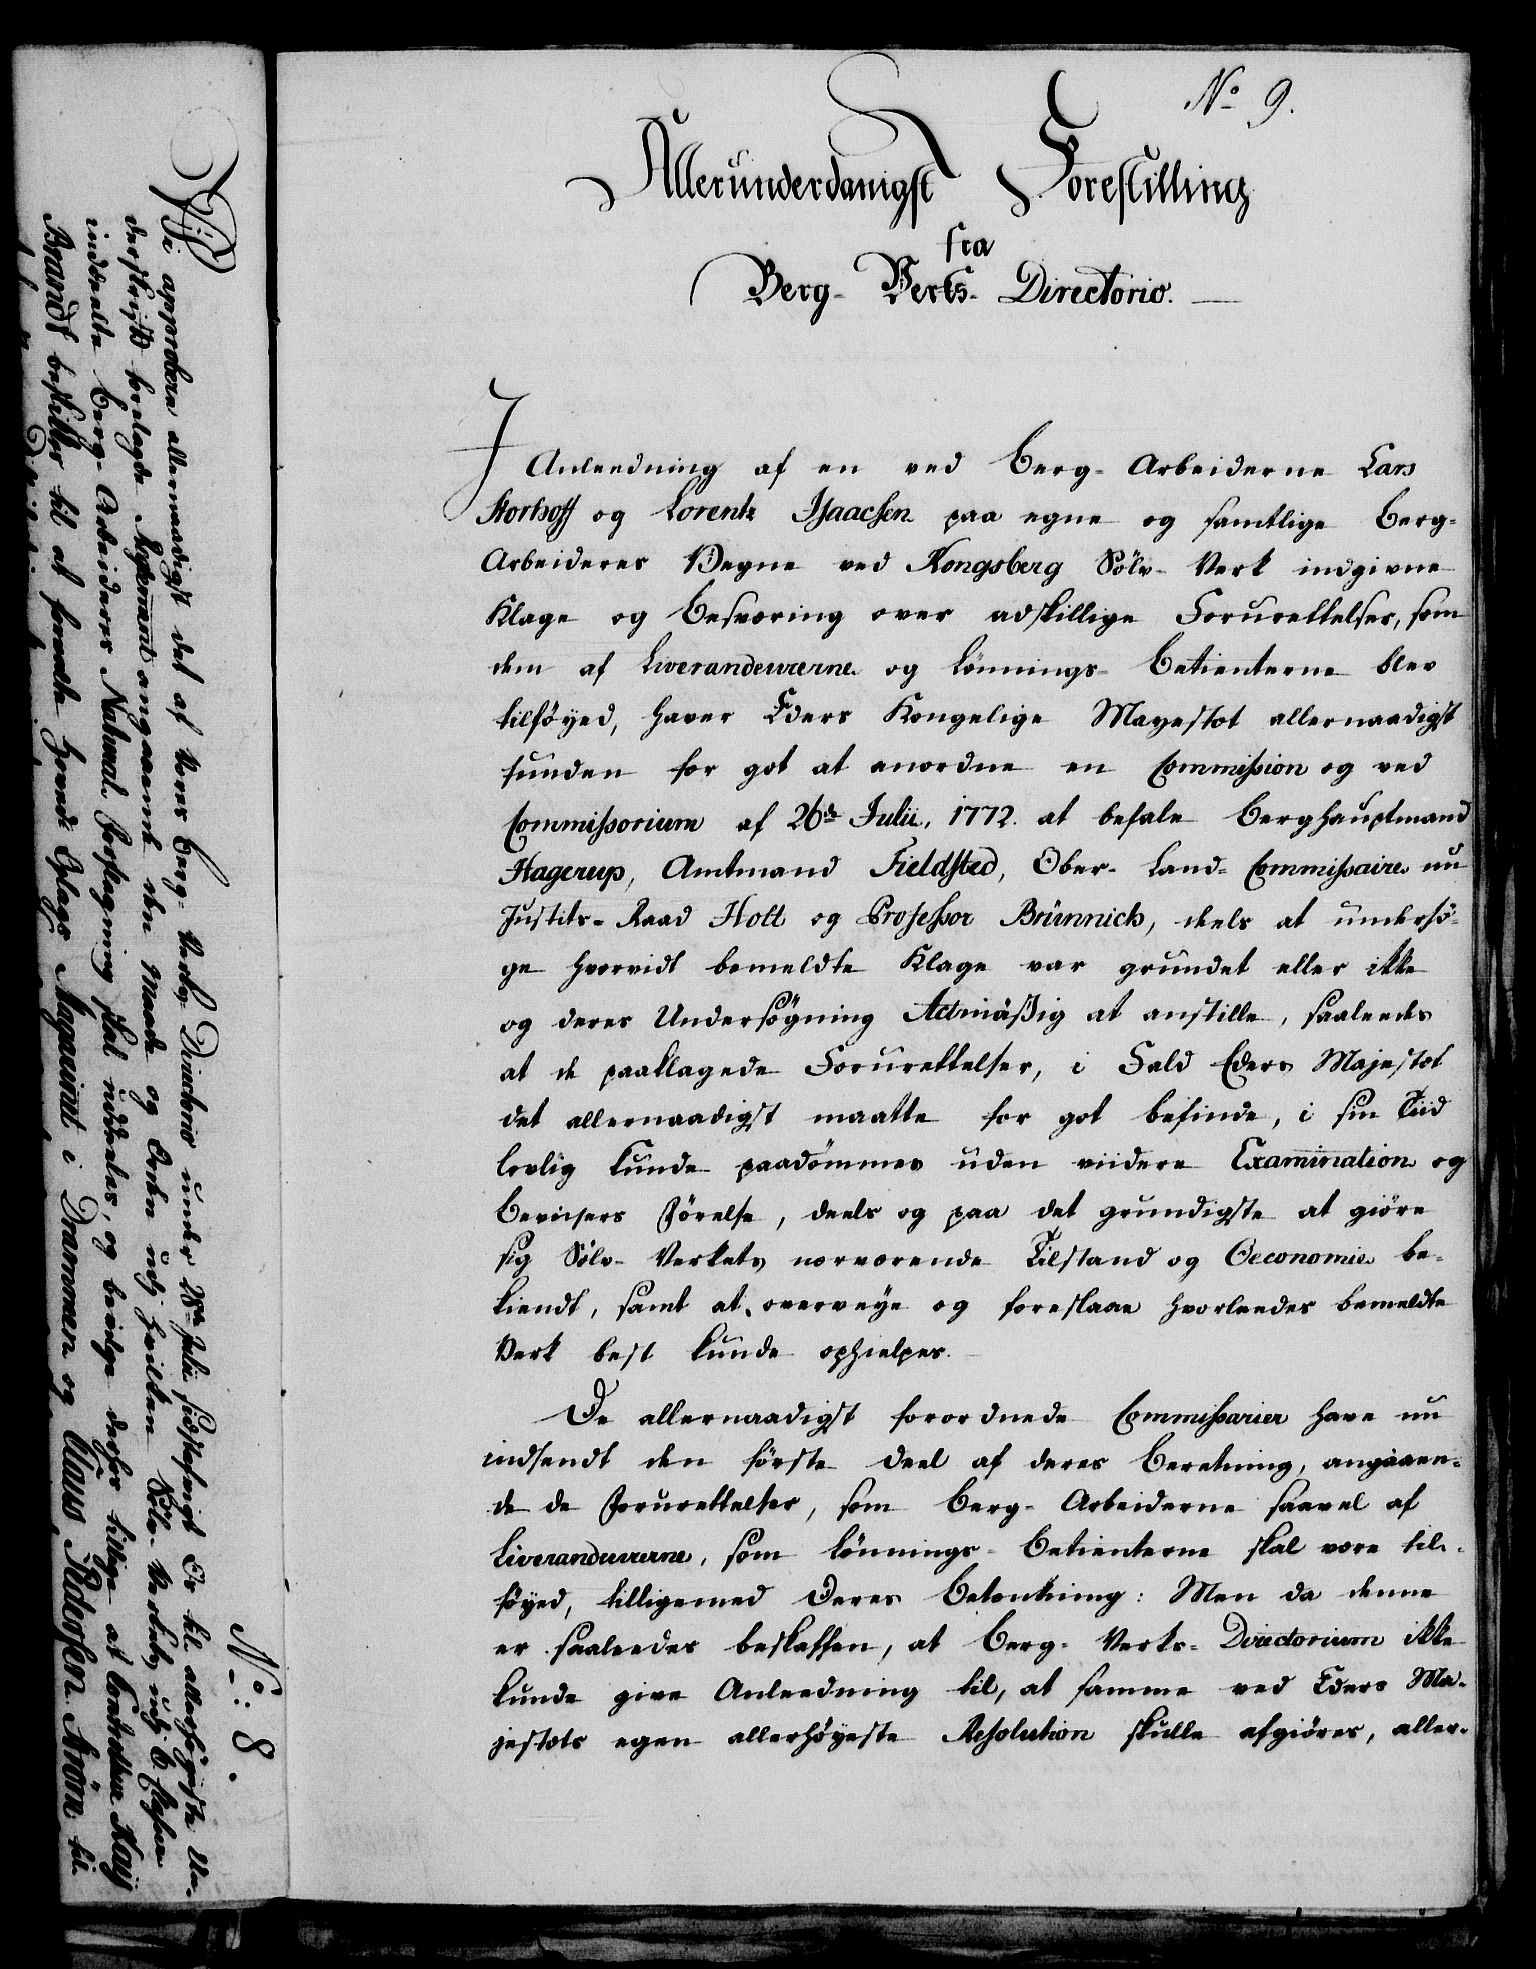 No 9.
Allerunderdanigst Forestilling
fra
Berg-Verks-Directorio.
I Anleedning af en ved Berg-Arbeiderne Lars
Korhoff og Lorentz Isaachsen paa egne og samtlige Berg-
Arbeideres Vegne ved Kongsberg Sölv-Verk indgivne
Klage og Besværing over adskillige Forurettelser, som
dem af Liverandeurerne og Lönnings-Betienterne blev
tilföyed, haver Eders Kongelige Mayestæt allernaadigst
funden for got at anordne en Commission og ved
Commissorium af 26de Julii, 1772. at befale Berghauptmand
Hagerup, Amtmand Fieldsted, Ober-Land-Commissaire nu
Justits-Raad Holt og Professor Brünnich, deels at undersö-
ge hvorvidt bemeldte Klage var grundet eller ikke
og deres Undersögning Actmäßig at anstille, saaleedes
at de paaklagede Forurettelser, i Fald Eders Majestæt
det allernaadigst maatte for got befinde, i sin Tiid
lovlig kunde paadömmes uden viidere Examination og
Beviisers Förelse, deels og paa det grundigste at giöre
sig Sölv-Verkets nærværende Tilstand og Oeconomie be-
kiendt, samt at overveye og foreslaae hvorleedes bemeldte
Verk best kunde ophielpes.
De allernaadigst forordnede Commissarier have nu
indsendt den förste Deel af deres Beretning, angaaen-
de de Forurettelser, som Berg-Arbeiderne saavel af
Liverandeurerne, som Lönnings-Betienterne skal være til-
föyed, tilligemed Deres Betænkning: Men da denne
er saaleedes beskaffen, at Berg-Verks-Directorium ikke
kunde give Anleedning til, at samme ved Eders Ma-
jestæts egen allerhöyeste Resolution skulle afgiöres, aller-
No: 8.
Vi approbere allernaadigst det af Vores Berg-Verks-Directorio under 28de Julii sidstafvigt Os til allerhöyeste Un-
derskrift forelagde angaaende den Maade og Orden udj hvilken Sölv-Verkets udj 6 Classer
inddeelte Berg-Arbeideres Natural Forplegning skal uddeeles, og bevilge derfor tillige at Controlleur Kaÿ
Brandt beskikkes til at forvalte Magazinet i Drammen og Clauss Pedersen Ström til